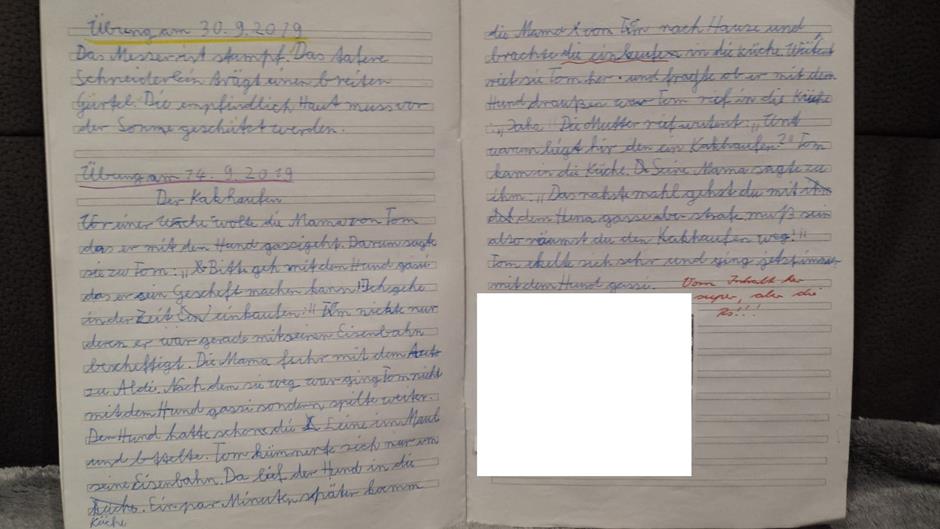 Übung am 30.9.2019
Das Messer ist stumpf. Das tafere
Schneiderlein trägt einen breiten
Gürtel. Die empfindlich Haut muss vor
der Sonne geschützt werden.
Übung am 14.9.2019
Der Kakhaufen
Vor einer Woche wolte die Mama von Tom
das er mit dem Hund gassi geht. Darum sagte
sie zu Tom: „Bitte geh mit dem Hund gassi
das er sein Gescheft machen kann! Ich gehe
in der Zeit einkaufen!" Tom nickte nur
deren er war gerade mit seinen Eisenbahn
bescheftigt. Die Mama fuhr mit dem Auto
zu Aldi. Nach dem sie weg war ging Tom nicht
mit dem Hund gassi sondern spilte weiter.
Der Hund hatte schon die Leine im Maul
und bettelte. Tom kümmerte sich nur um
seine Eisenbahn. Da lief der Hund in die
Küche. Ein par Minuten später kamm
Küche
die Mama vom Tom nach Hause und
brachte die einkaufen in die Küche. Wütend
rief sie Tom her und fragte ob er mit dem
Hund draußen war Tom rief in die Küche
: „Jaha!" Die Mutter rief wütent: „Und
warum liegt hir den ein Kakhaufen?" Tom
kam in die Küche. Seine Mama sagte zu
ihm: „Das nähste mahl gehst du mit
dem Hund gasse aber strafe muß sein
also räumst du den Kakhaufen weg!"
Tom ekelte sich sehr und ging jetzt immer
mit dem Hund gassi.
Vom Inhalt her
super, aber die
Rs!!!